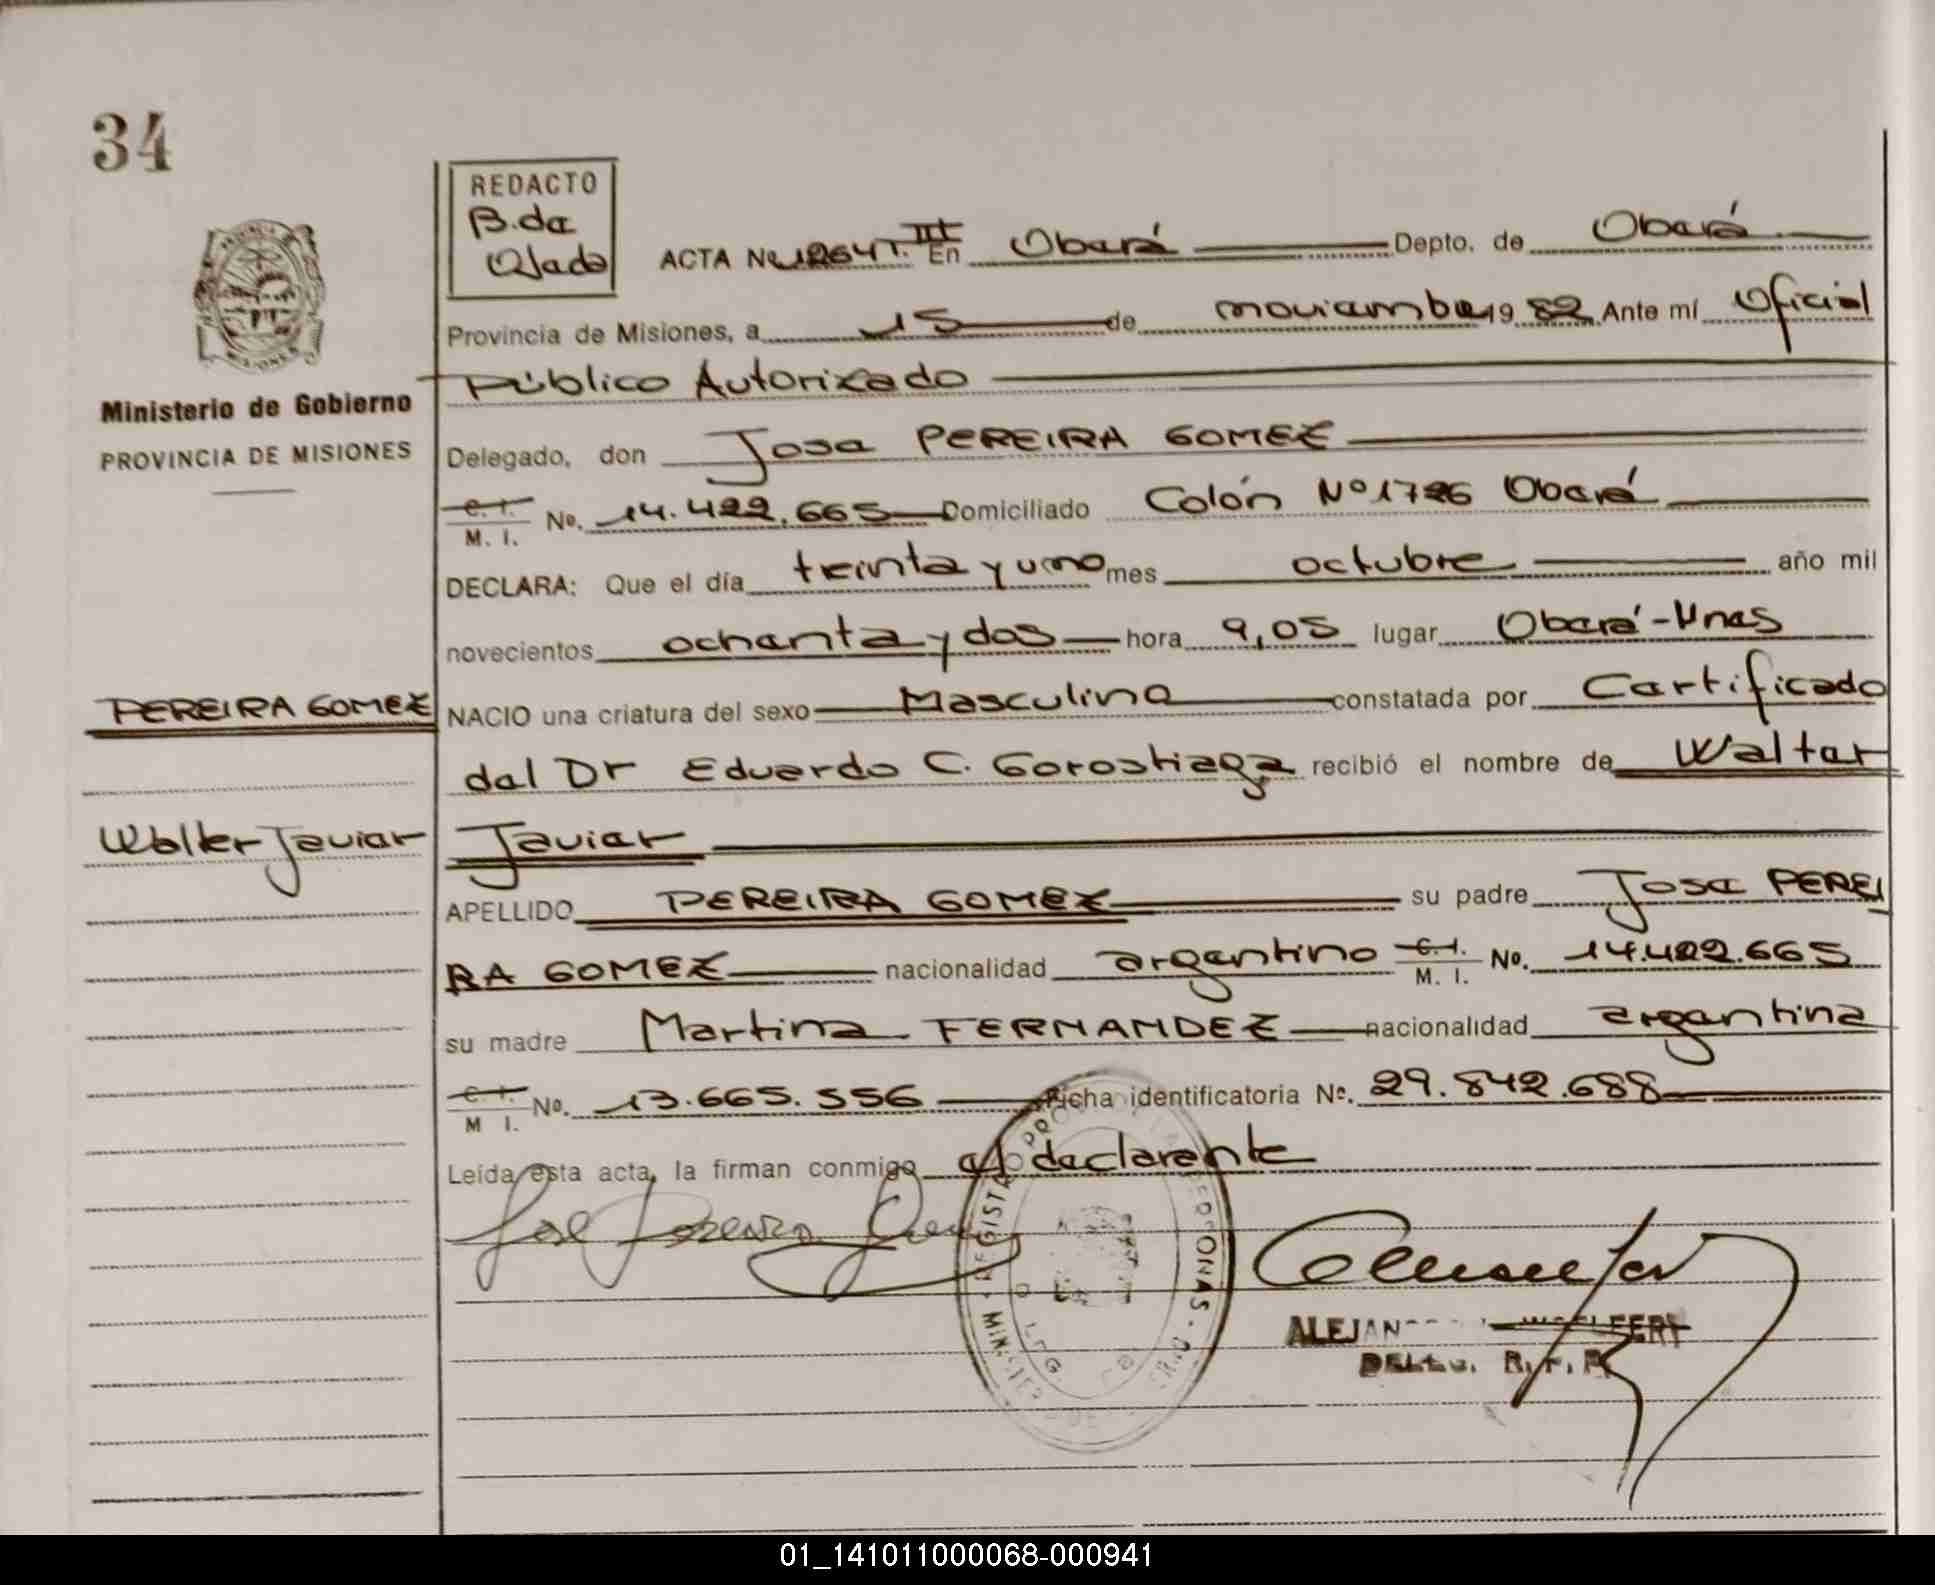 34
REDACTO
B. de
Olado
ACTA No 1264 T. III En Oberá Depto. de Oberá
Provincia de Misiones, a 15 de noviembre 19 82 Ante mí Oficial
Público Autorizado
Ministerio de Gobierno
PROVINCIA DE MISIONES
Delegado, don Jose PEREIRA GOMEZ
C. I. M. I. No. 14.422.665 Domiciliado Colón Nº 1726 Oberá
DECLARA: Que el día treinta y uno mes octubre año mil
novecientos ochenta y dos hora 9,05 lugar Oberá-Mnes
PEREIRA GOMEZ
NACIO una criatura del sexo Masculino constatada por Certificado
del Dr Eduardo C. Gorostiaga recibió el nombre de Walter
Walter Javier
Javier
APELLIDO PEREIRA GOMEZ su padre Jose PEREI
RA GOMEZ nacionalidad argentino C. I. M. I. No. 14.422.665
su madre Martina FERNANDEZ nacionalidad argentina
C. I. M I. No. 13.665.556 Ficha identificatoria No. 29.842.688
Leída esta acta, la firman conmigo el declarante
01_141011000068-000941